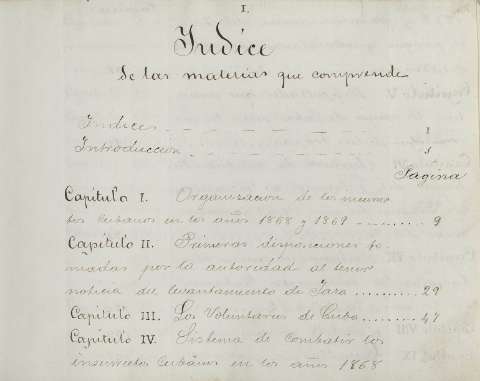 I.
Indice
de las materias que comprende
Indices - - - - - - - - I
Introduccion - - - - - -
Pagina
Capitulo I. Organizacion de los
cubanos en los años 1868 y 1869 ---------- 9
Capítulo II. Primeras disposiciones to-
madas por la autoridad al tener
noticia del levantamiento de Yara .......... 29
Capítulo III. Los Voluntarios de Cuba .... 47
Capítulo IV. Sistema de combatir los
insurrectos cubanos en los años 1868